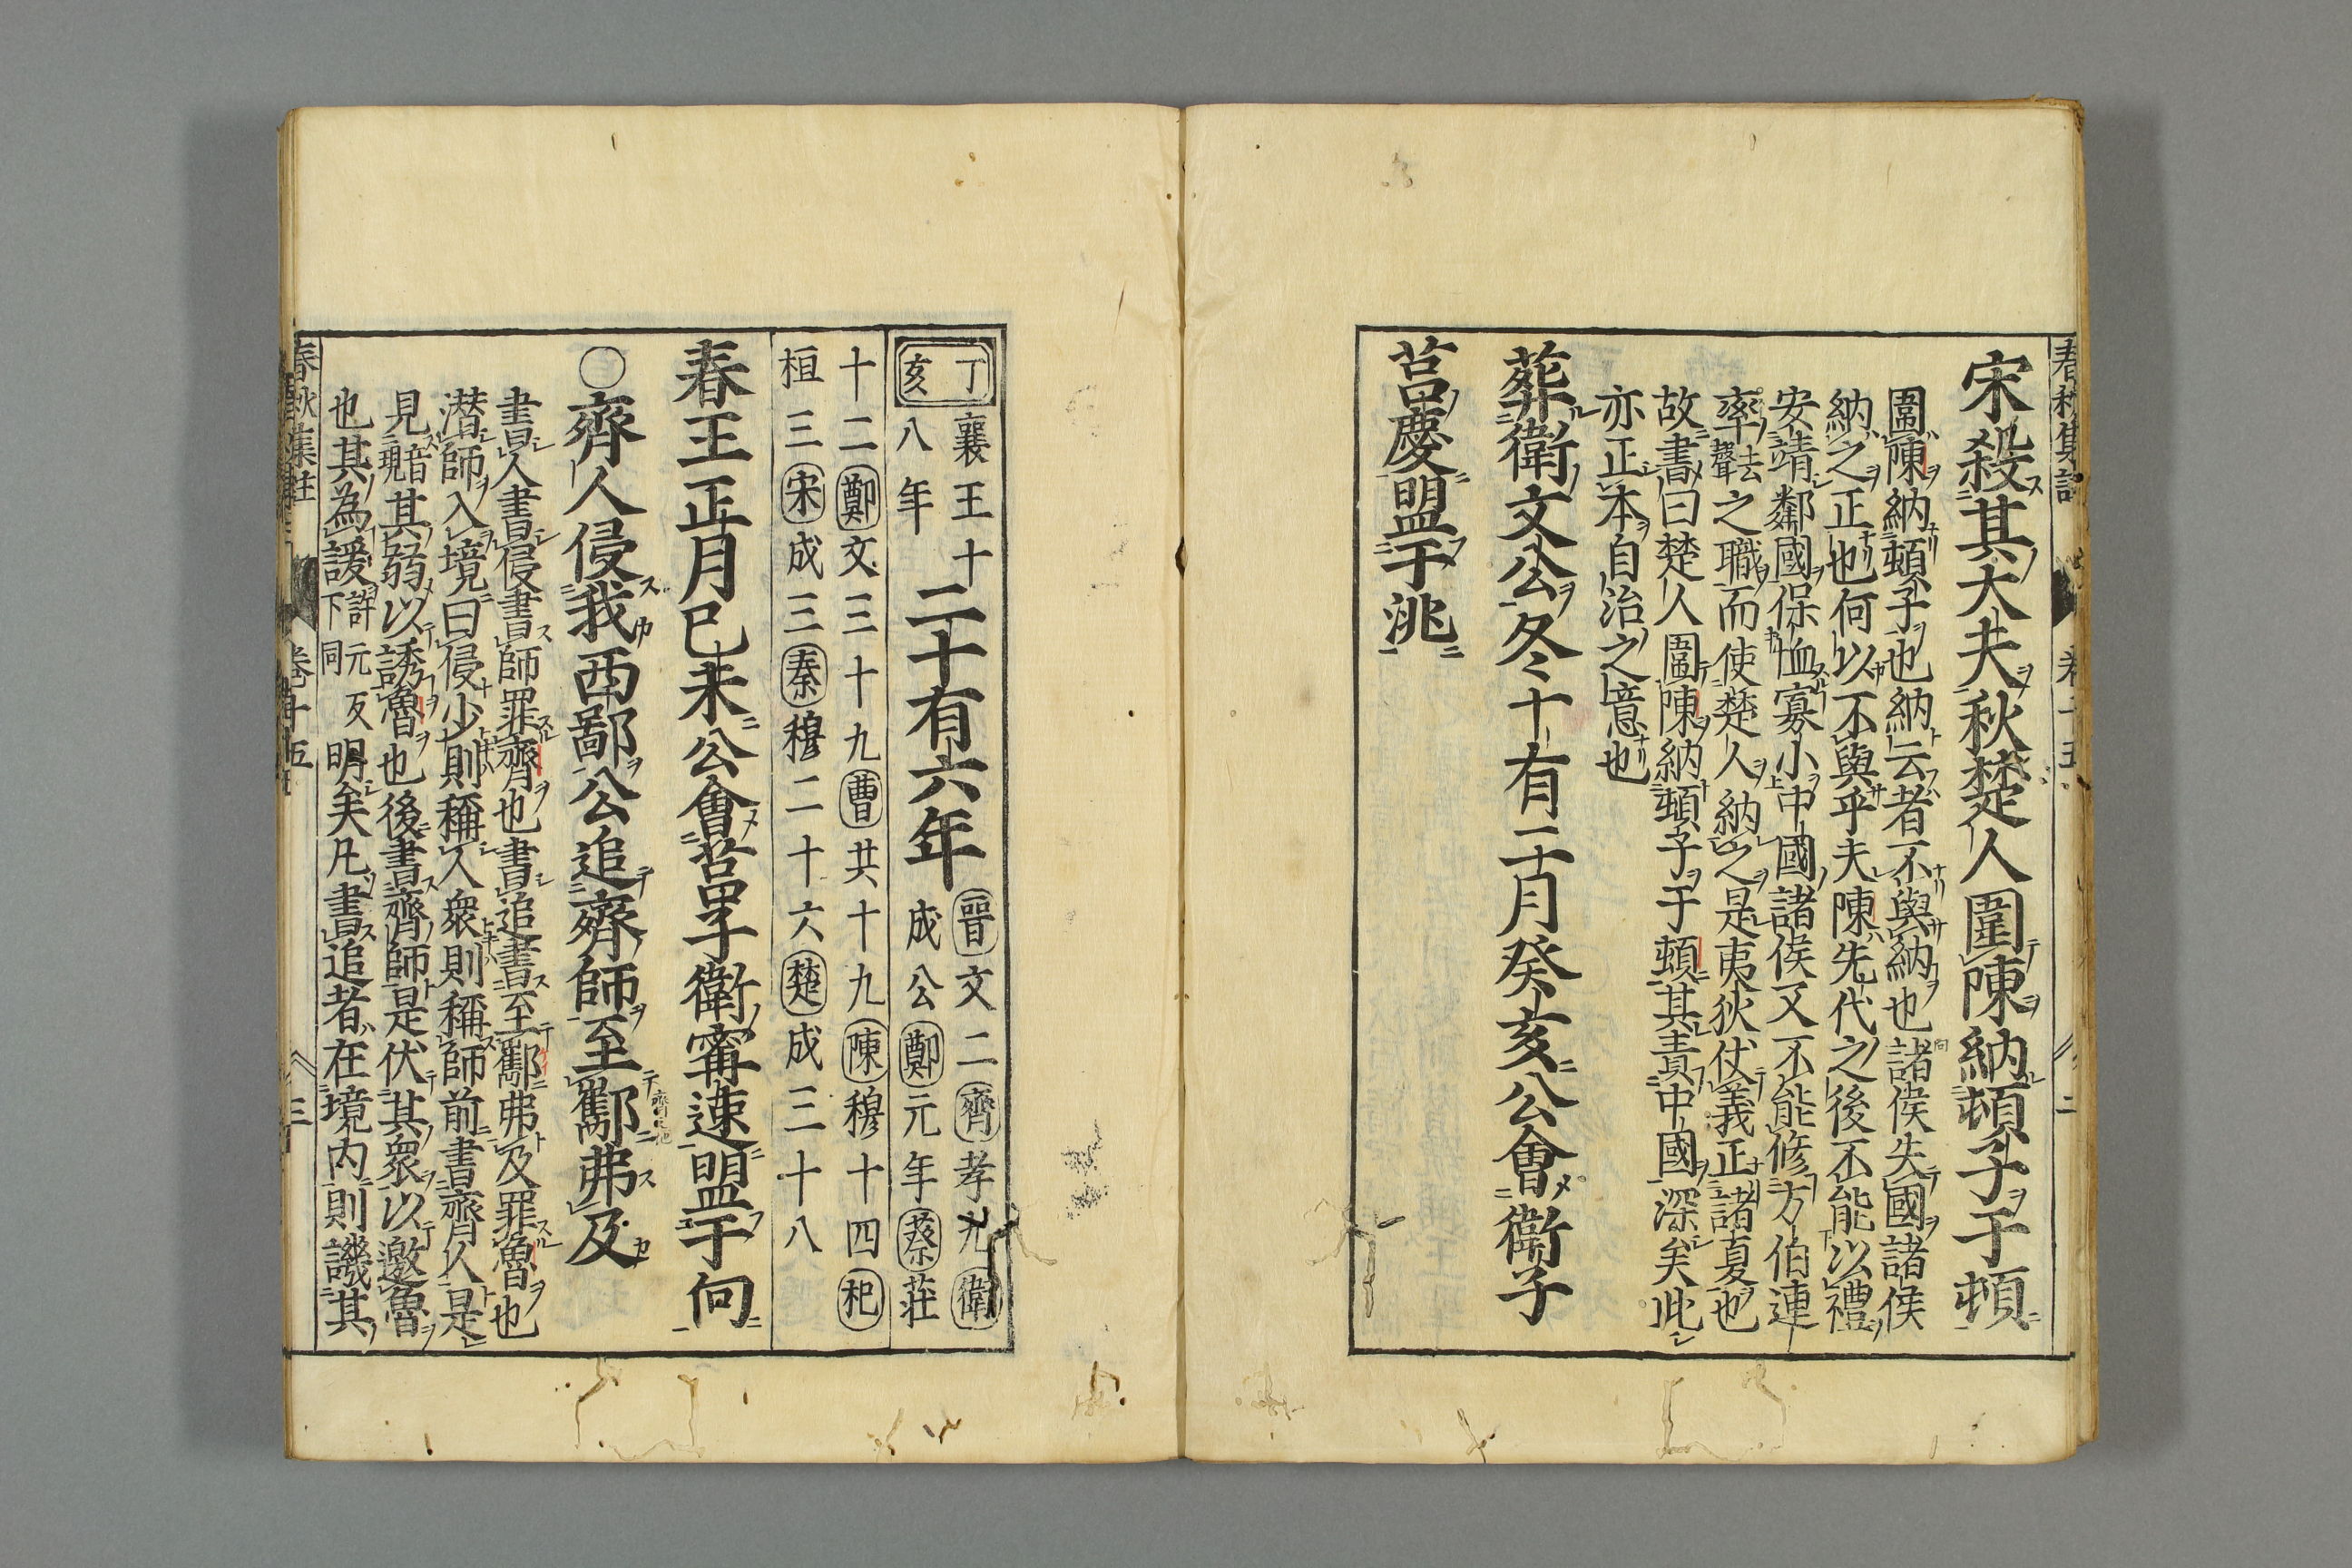 宋殺其大夫秋楚人圍陳納頓子于頓
圍陳納頓子也納云者不與納也諸侯失國諸侯
納之正也何以不與乎夫陳先代之後不能以禮
安靖鄰國保恤寡小中國諸侯又不能修方伯連
率去聲之職而使楚人納之是夷狄仗義正諸夏也
故書曰楚人圍陳納頓子于頓其責中國深矣此
亦正本自治之意也
葬衛文公冬十有二月癸亥公會衛子
莒慶盟于洮
丁亥
襄王十八年
二十有六年
晉文二齊孝九衛成公鄭元年蔡莊
十二鄭文三十九曹共十九陳穆十四杞
桓三宋成三秦穆二十六楚成三十八
春王正月己未公會莒子衛甯速盟于向
○齊人侵我西鄙公追齊師至酅弗及
書人書侵書師罪齊也書追書至酅弗及罪魯也
潛師入境曰侵少則稱人衆則稱師前書齊人是
見音現其弱以誘魯也後書齊師是伏其衆以邀魯
也其為諼許元反下同明矣凡書追者在境内則譏其
春秋集註 卷十五 三